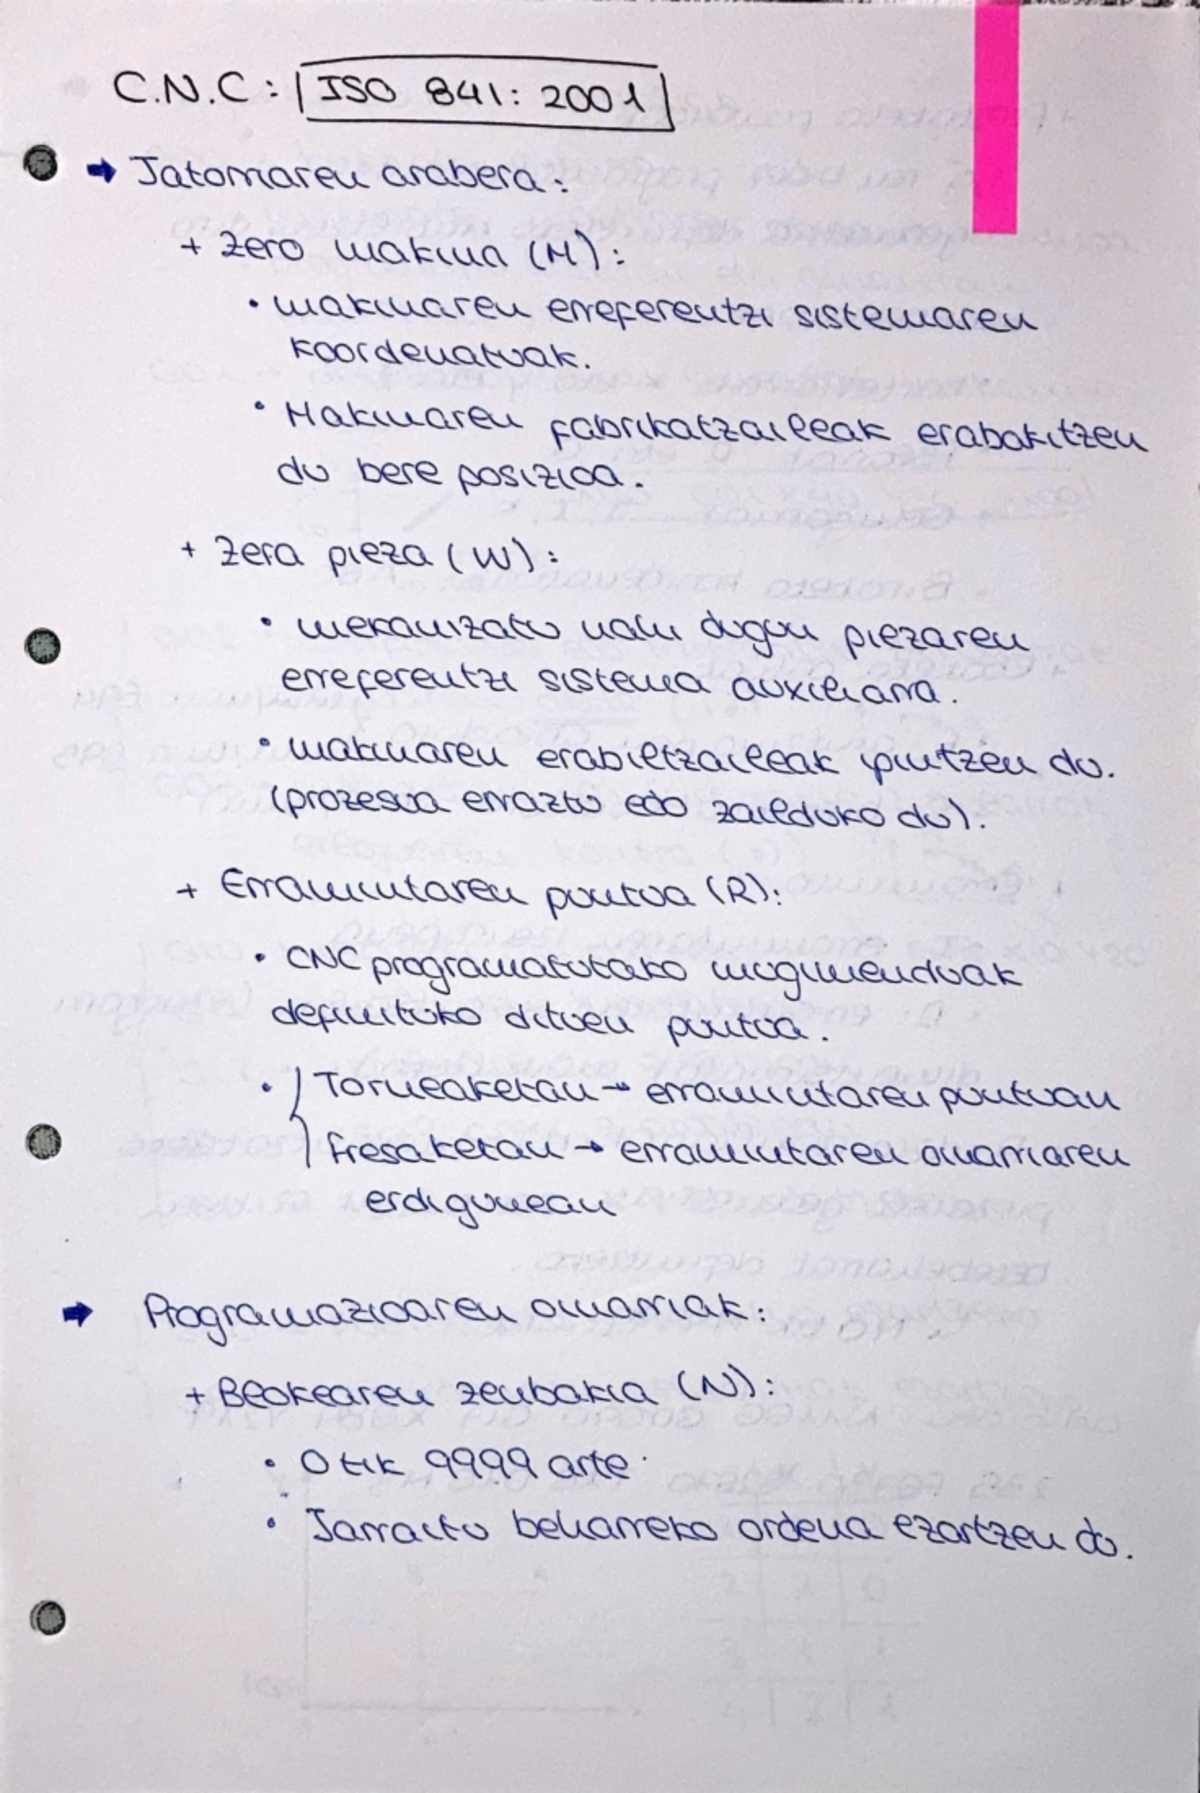 C.N.C: ISO 841:2001
➡ Jatorriaren arabera:
+ Zero makina (M):
• makinaren erreferentzi sistemaren
koordenatuak.
• Makinaren fabrikatzaileak erabakitzen
du bere posizioa.
+ Zera pieza (W):
• mekanizatu nahi dugun piezaren
erreferentzi sistema auxiliarra.
• makinaren erabiltzaileak ipintzen du.
(prozesua erraztu edo zailduko du).
+ Erramintaren puntua (R):
• CNC programatutako mugimenduak
definituko dituen puntua.
• Torneaketan → erramintaren puntuan
fresaketan → erramintaren oinarriaren
erdigunean
➡ Programazioaren oinarriak:
+ Blokearen zenbakia (N):
• 0 tik 9999 arte.
• Jarraitu beharreko ordena ezartzen du.